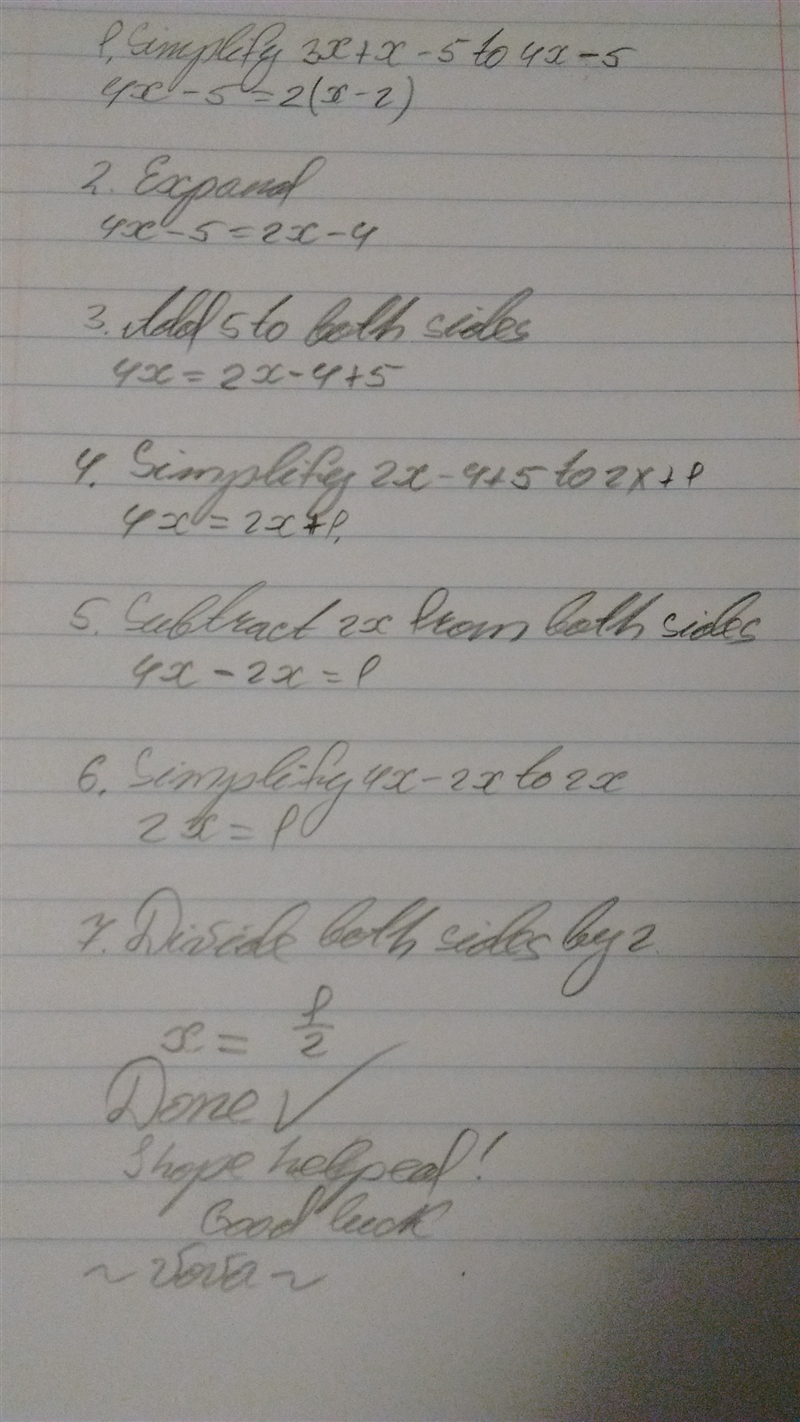 1. Simplify 3x+x-5 to 4x-5
4x-5=2(x-2)
2. Expand
4x-5=2x-4
3. Add 5 to both sides
4x=2x-4+5
4. Simplify 2x-4+5 to 2x+1
4x=2x+1
5. Subtract 2x from both sides
4x-2x=1
6. Simplify 4x-2x to 2x
2x=1
7. Divide both sides by 2.
x=1/2
Done ✓
I hope helped!
Good luck